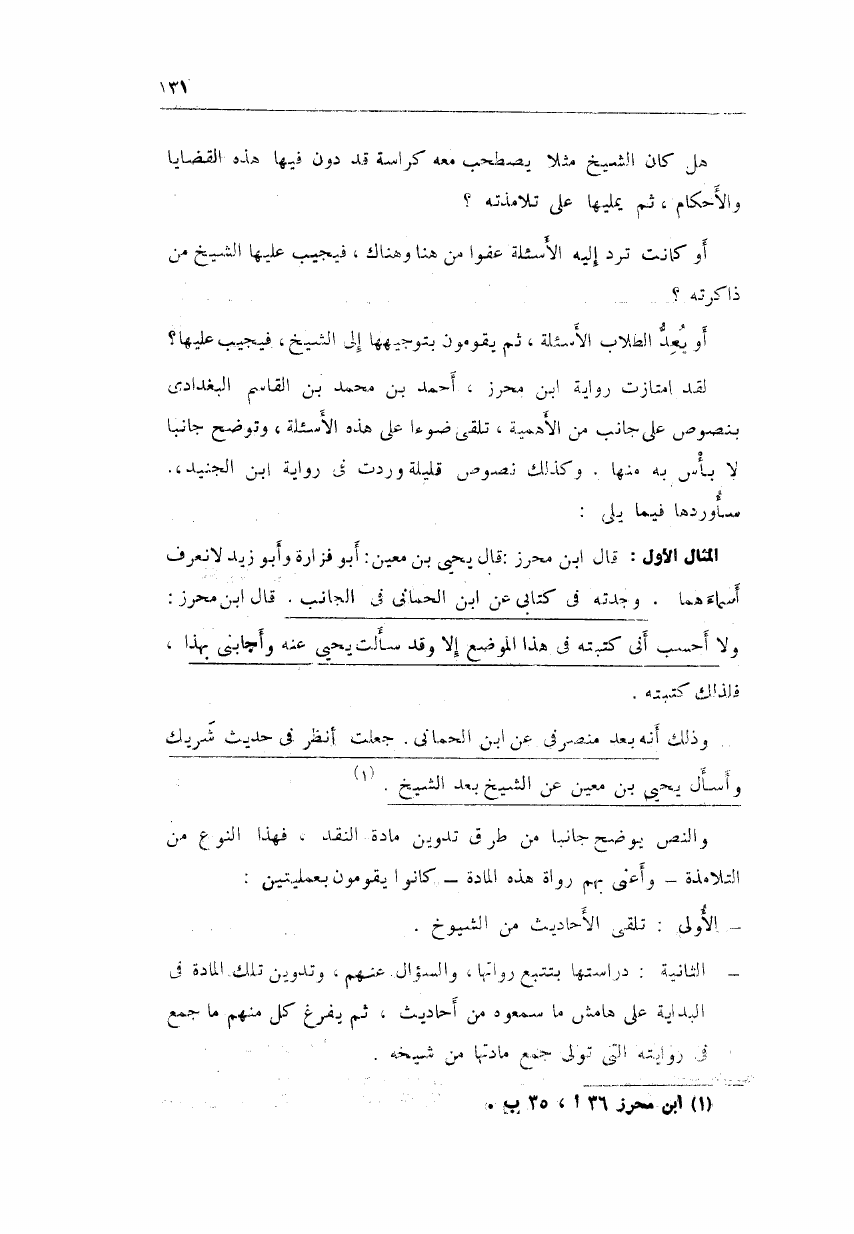 ١٣١
هل كان الشيخ مثلا يصطحب معه كراسة قد دون فيها هذه القضايا
والأحكام ، ثم يمليها على تلامذته ؟
أو كانت ترد إليه الأسئلة عفوا من هنا وهناك ، فيجيب عليها الشيخ من
ذاكرته ؟
أو يُعِدُّ الطلاب الأسئلة ، ثم يقومون بتوجيهها إلى الشيخ ، فيجيب عليها؟
لقد امتازت رواية ابن محرز ، أحمد بن محمد بن القاسم البغدادى
بنصوص على جانب من الأهمية ، تلقى ضوءا على هذه الأسئلة ، وتوضح جانبا
لا بأس به منها . وكذلك نصوص قليلة وردت فى رواية ابن الجنيد ،.
سأوردها فيما يلى :
المثال الأول : قال ابن محرز :قال يحيى بن معين: أبو فزارة وأبو زيد لانعرف
أسماءهما . وجدته فى كتابى عن ابن الحمانى فى الجانب . قال ابن محرز :
ولا أحسب أنى كتبته فى هذا الموضع إلا وقد سألت يحيى عنه وأجابنى بهذا ،
فلذلك كتبته .
وذلك أنه بعد منصرفى عن ابن الحمانى . جعلت أنظر فى حديث شَريك
وأسأل يحيى بن معين عن الشيخ بعد الشيخ . (١)
والنص يوضح جانبا من طرق تدوين مادة النقد ، فهذا النوع من
التلامذة – وأعنى بهم رواة هذه المادة – كانوا يقومون بعمليتين :
– الأولى : تلقى الأحاديث من الشيوخ .
– الثانية : دراستها بتتبع رواتها ، والسؤال عنهم ، وتدوين تلك المادة فى
البداية على هامش ما سمعوه من أحاديث ، ثم يفرغ كل منهم ما جمع
فى روايته التى تولى جمع مادتها من شيخه .
(١) ابن محرز ٣٦ أ ، ٣٥ ب .